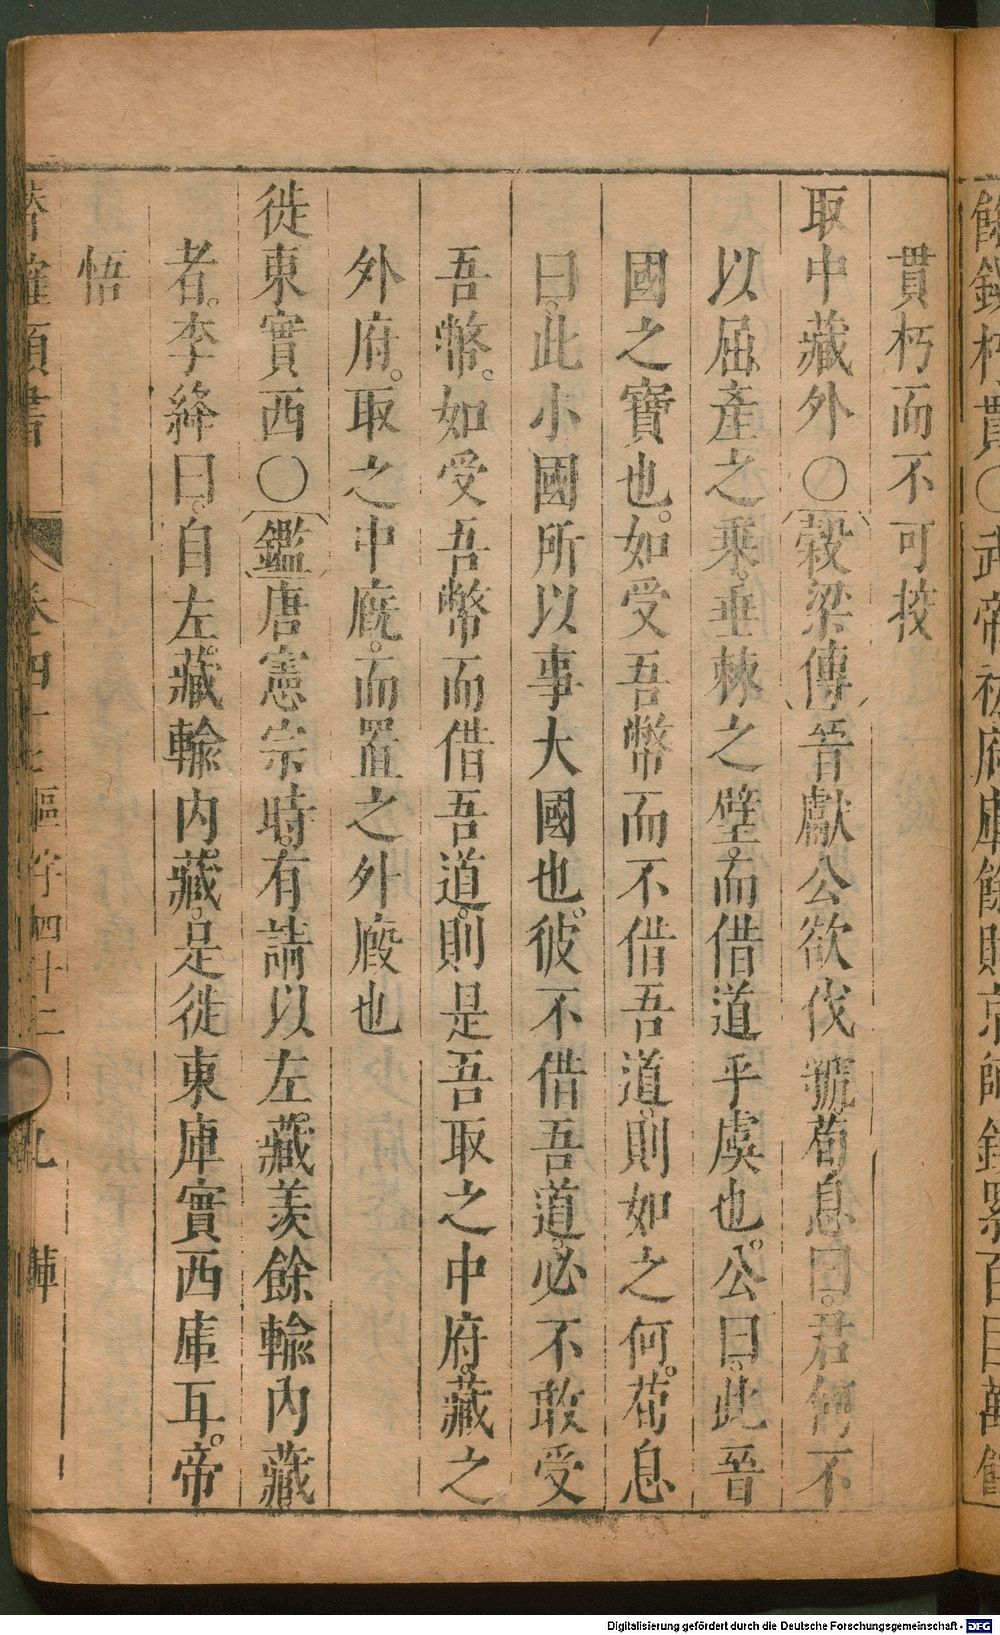 餘錢朽貫〇武帝初府庫餘財京師錢累百巨萬
貫朽而不可挍
取中藏外〇穀梁傳晉獻公欲伐虢荀息曰君何不
以屈產之乘垂棘之璧而借道乎虞也公曰此晉
國之寶也如受吾幣而不借吾道則如之何荀息
曰此小國所以事大國也彼不借吾道必不敢受
吾幣如受吾幣而借吾道則是吾取之中府藏之
外府取之中廐而置之外廏也
徙東實西〇鑑唐憲宗時有請以左藏羡餘輸內藏
者李絳曰自左藏輸內藏是徙東庫實西庫耳帝
悟
類書
卷四十七 字四十二 九
Digitalisierung gefördert durch die Deutsche Forschungsgemeinschaft - DFG